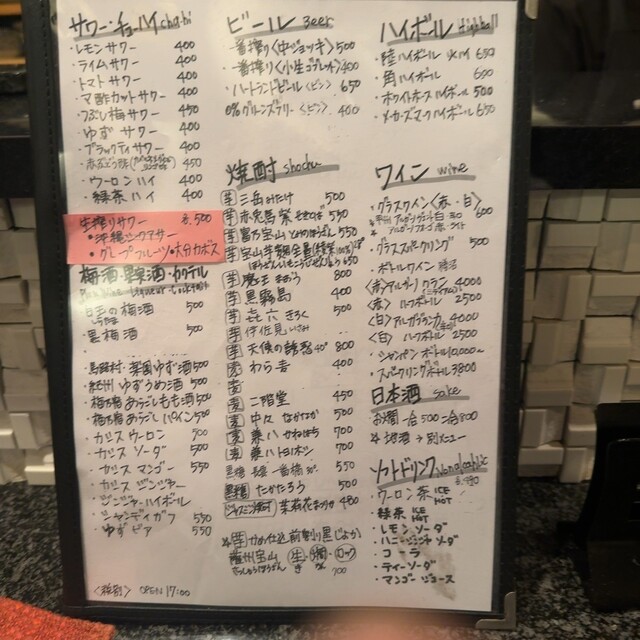 サワー・チューハイ chu-hi
・レモンサワー 400
・ライムサワー 400
・トマトサワー 400
・マ酢カットサワー 400
・つぶし梅サワー 450
・ゆずサワー 400
・ブラックティサワー 400
450
・ウーロンハイ 400
・緑茶ハイ 400
生搾りサワー 各500
・沖縄シークワサー
・グレープフルーツ・大分カボス
梅酒・果実酒・カクテル
500
・黒梅酒 500
菜園ゆず酒 500
・紀州ゆずうめ酒 500
・梅乃宿あらごしもも酒 500
・梅乃宿あらごしパイン 500
・カシスウーロン 500
・カシスソーダ 500
・カシスマンゴー 550
・カシスジンジャー
・ジンジャーハイボール
・シャンディガフ 550
・ゆずビア 550
<税別> OPEN 17:00
ビール Beer
一番搾り<中ジョッキ> 500
一番搾り<小生ゴブレット> 400
・ハートランドビール<ビン> 650
0% グリーンズフリー<ビン> 400
焼酎 shochu
芋 三岳 みたけ 500
芋 赤兎馬 紫 500
芋 富乃宝山 とみのほうざん 550
芋 宝山芋麹全量 650
芋 魔王 まおう 800
芋 黒霧島 400
芋 㐂六 きろく 500
芋 伊佐美 いさみ
芋 天使の誘惑 40° 800
麦 わら音 400
麦
麦 二階堂 450
麦 中々 なかなか 500
麦 兼八 かねはち 700
麦 兼八トヨホシ 700
550
黒糖 たかたろう 500
茉莉花 まつりか 480
かめ仕込
薩州宝山 生 燗 ロック
700
ハイボール Highball
650
・角ハイボール 600
・ホワイトホースハイボール 500
・メーカーズマークハイボール 650
ワイン wine
・グラスワイン<赤・白> 600
・グラススパークリング 500
・ボトルワイン
<赤> 4000
<赤> ハーフボトル 2500
<白> 4000
<白> ハーフボトル 2500
・シャンパンボトル 10,000〜
・スパークリングボトル 3800
日本酒 sake
・お燗 一合500 二合800
・地酒→別メニュー
ソフトドリンク
・ウーロン茶 ICE HOT
・緑茶 ICE HOT
・レモンソーダ
・ハニージンジャーソーダ
・コーラ
・ティーソーダ
・マンゴージュース